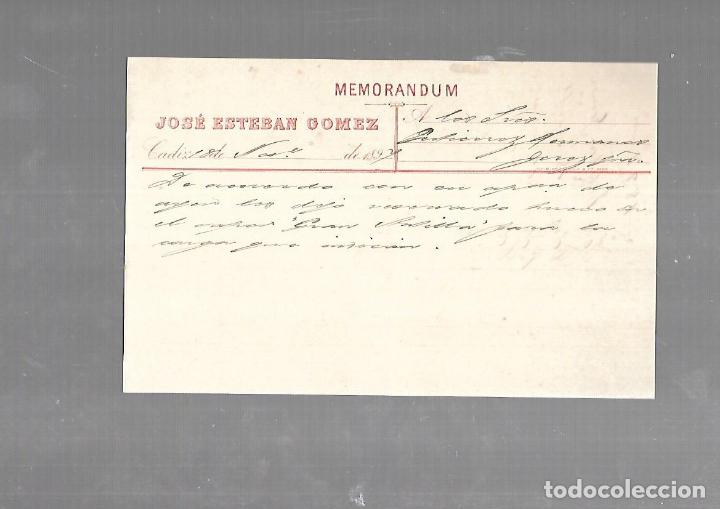 MEMORANDUM
JOSÉ ESTEBAN GOMEZ
Cadiz 18 de Nov.e de 1897
A los Sres.
Gutierrez Hermanos
Jerez
De acuerdo con su de
ayer los dejo reservado hueco en
el vapor "Gran Antilla" para la
carga que indican.
todocoleccion